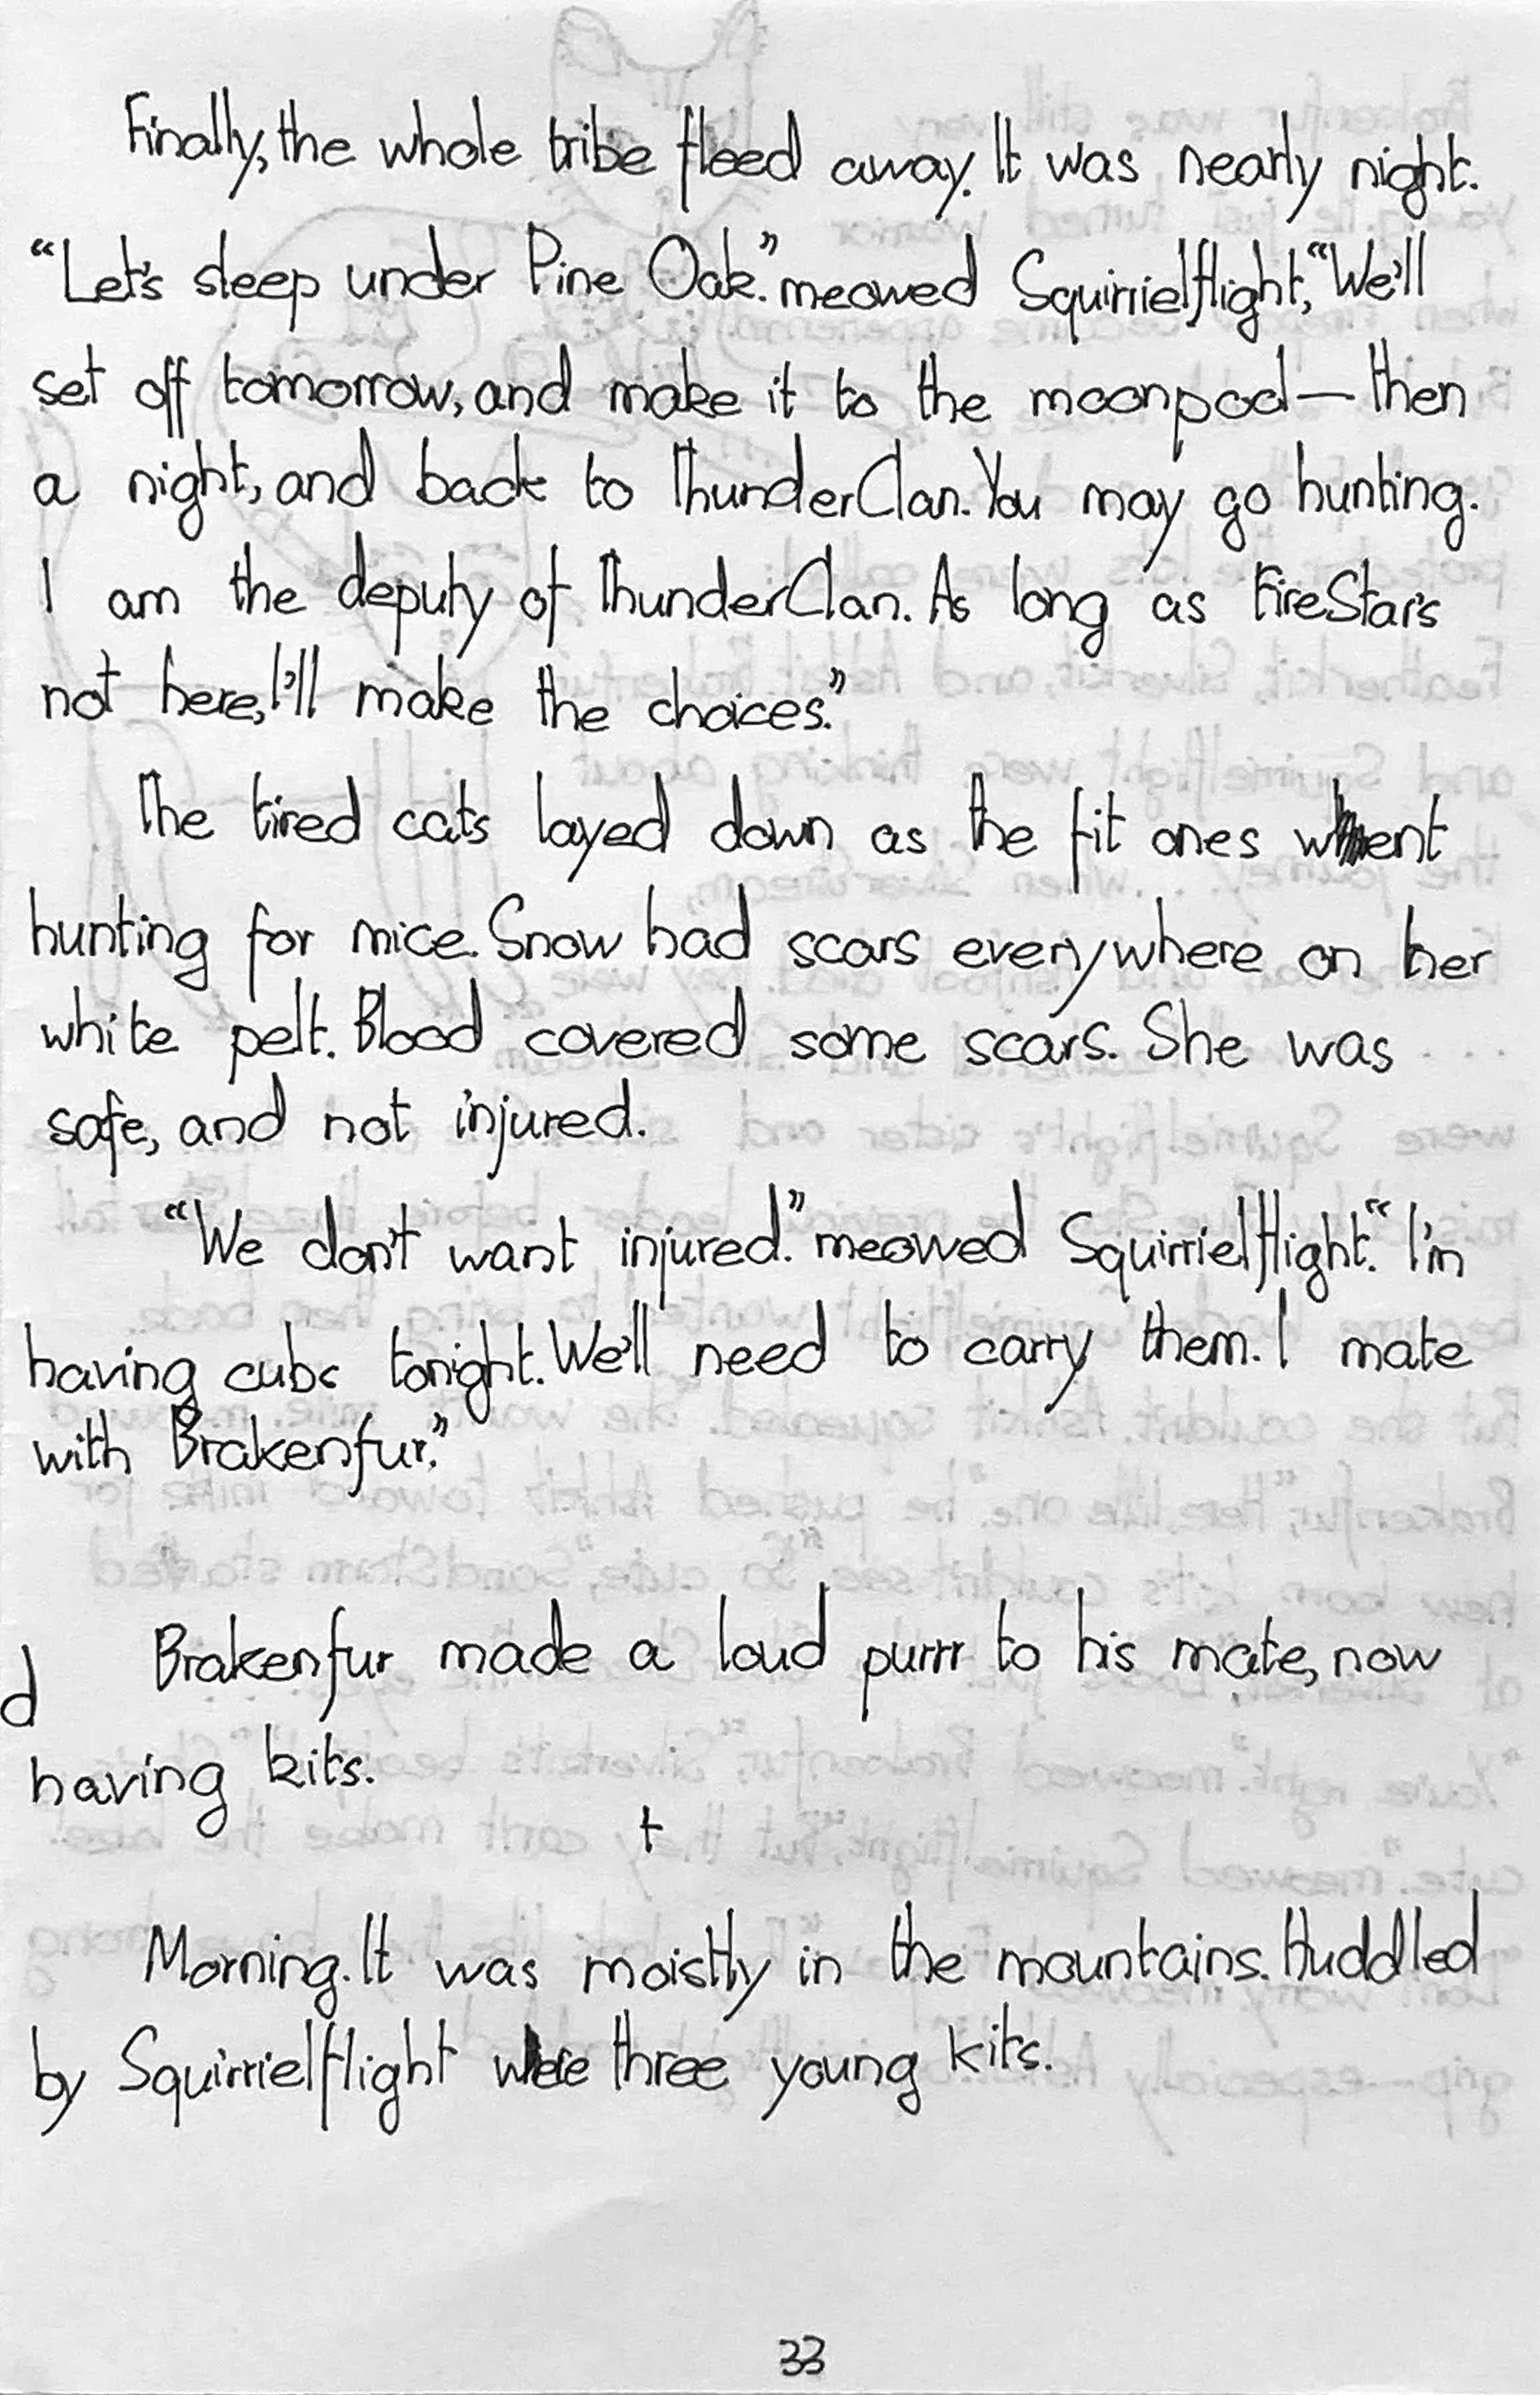 Finally, the whole tribe fleed away. It was nearly night.
“Let's sleep under Pine Oak.” meowed Squirrielflight, “We'll
set off tomorrow, and make it to the moonpool — then
a night, and back to ThunderClan. You may go hunting.
I am the deputy of ThunderClan. As long as FireStar's
not here, I'll make the choices.”
The tired cats layed down as the fit ones went
hunting for mice. Snow had scars everywhere on her
white pelt. Blood covered some scars. She was
safe, and not injured.
“We don't want injured.” meowed Squirrielflight. “I'm
having cubs tonight. We'll need to carry them. I mate
with Brakenfur.”
Brakenfur made a loud purrr to his mate, now
d
having kits.
t
Morning. It was moistly in the mountains. Huddled
by Squirrielflight were three young kits.
33